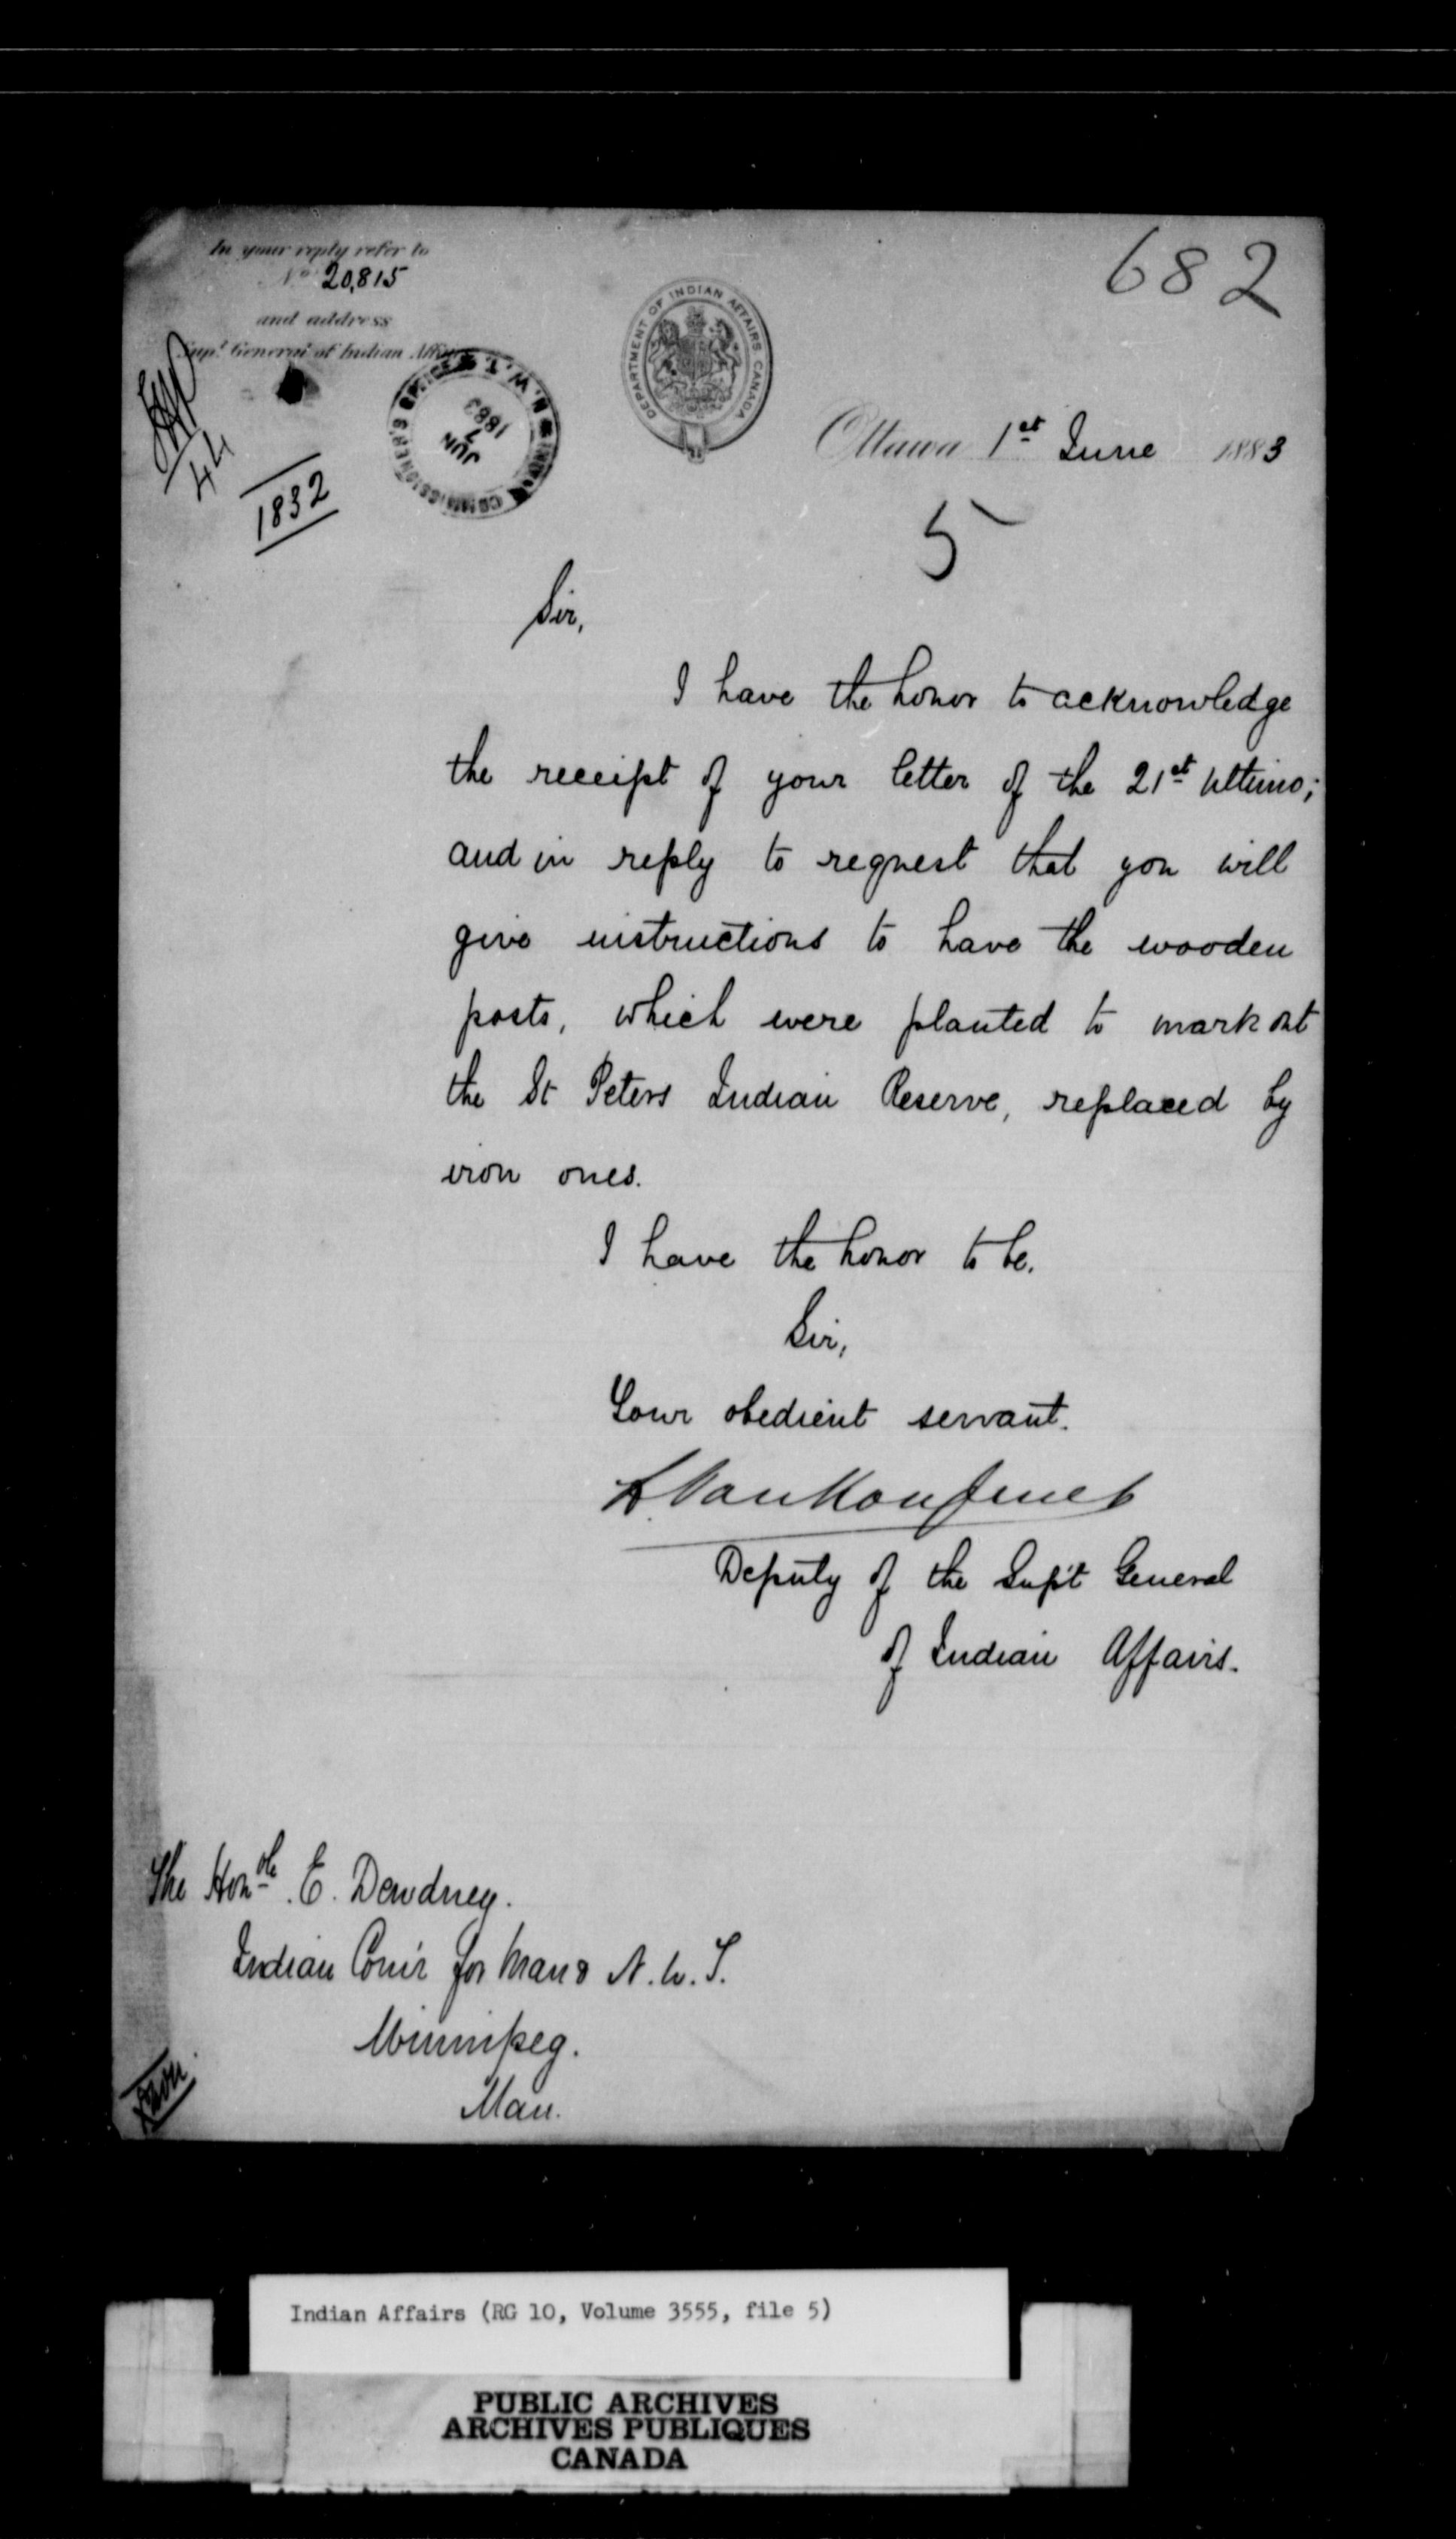 In your reply refer to
No 20,815
and address
Supt. General of Indian Affairs
682
DEPARTMENT OF INDIAN AFFAIRS CANADA
INDIAN COMMISSIONER'S OFFICE N.W.T.
JUN
7
1883
44
1832
Ottawa 1st June 1883
5
Sir,
I have the honor to acknowledge
the receipt of your letter of the 21st Ultimo;
and in reply to request that you will
give instructions to have the wooden
posts, which were planted to mark out
the St Peters Indian Reserve, replaced by
iron ones.
I have the honor to be.
Sir,
Your obedient servant.
L. VanKoughnet
Deputy of the Sup't General
of Indian Affairs.
The Honble. E. Dewdney.
Indian Com'r for Man & N.W.T.
Winnipeg.
Man.
Indian Affairs (RG 10, Volume 3555, file 5)
PUBLIC ARCHIVES
ARCHIVES PUBLIQUES
CANADA